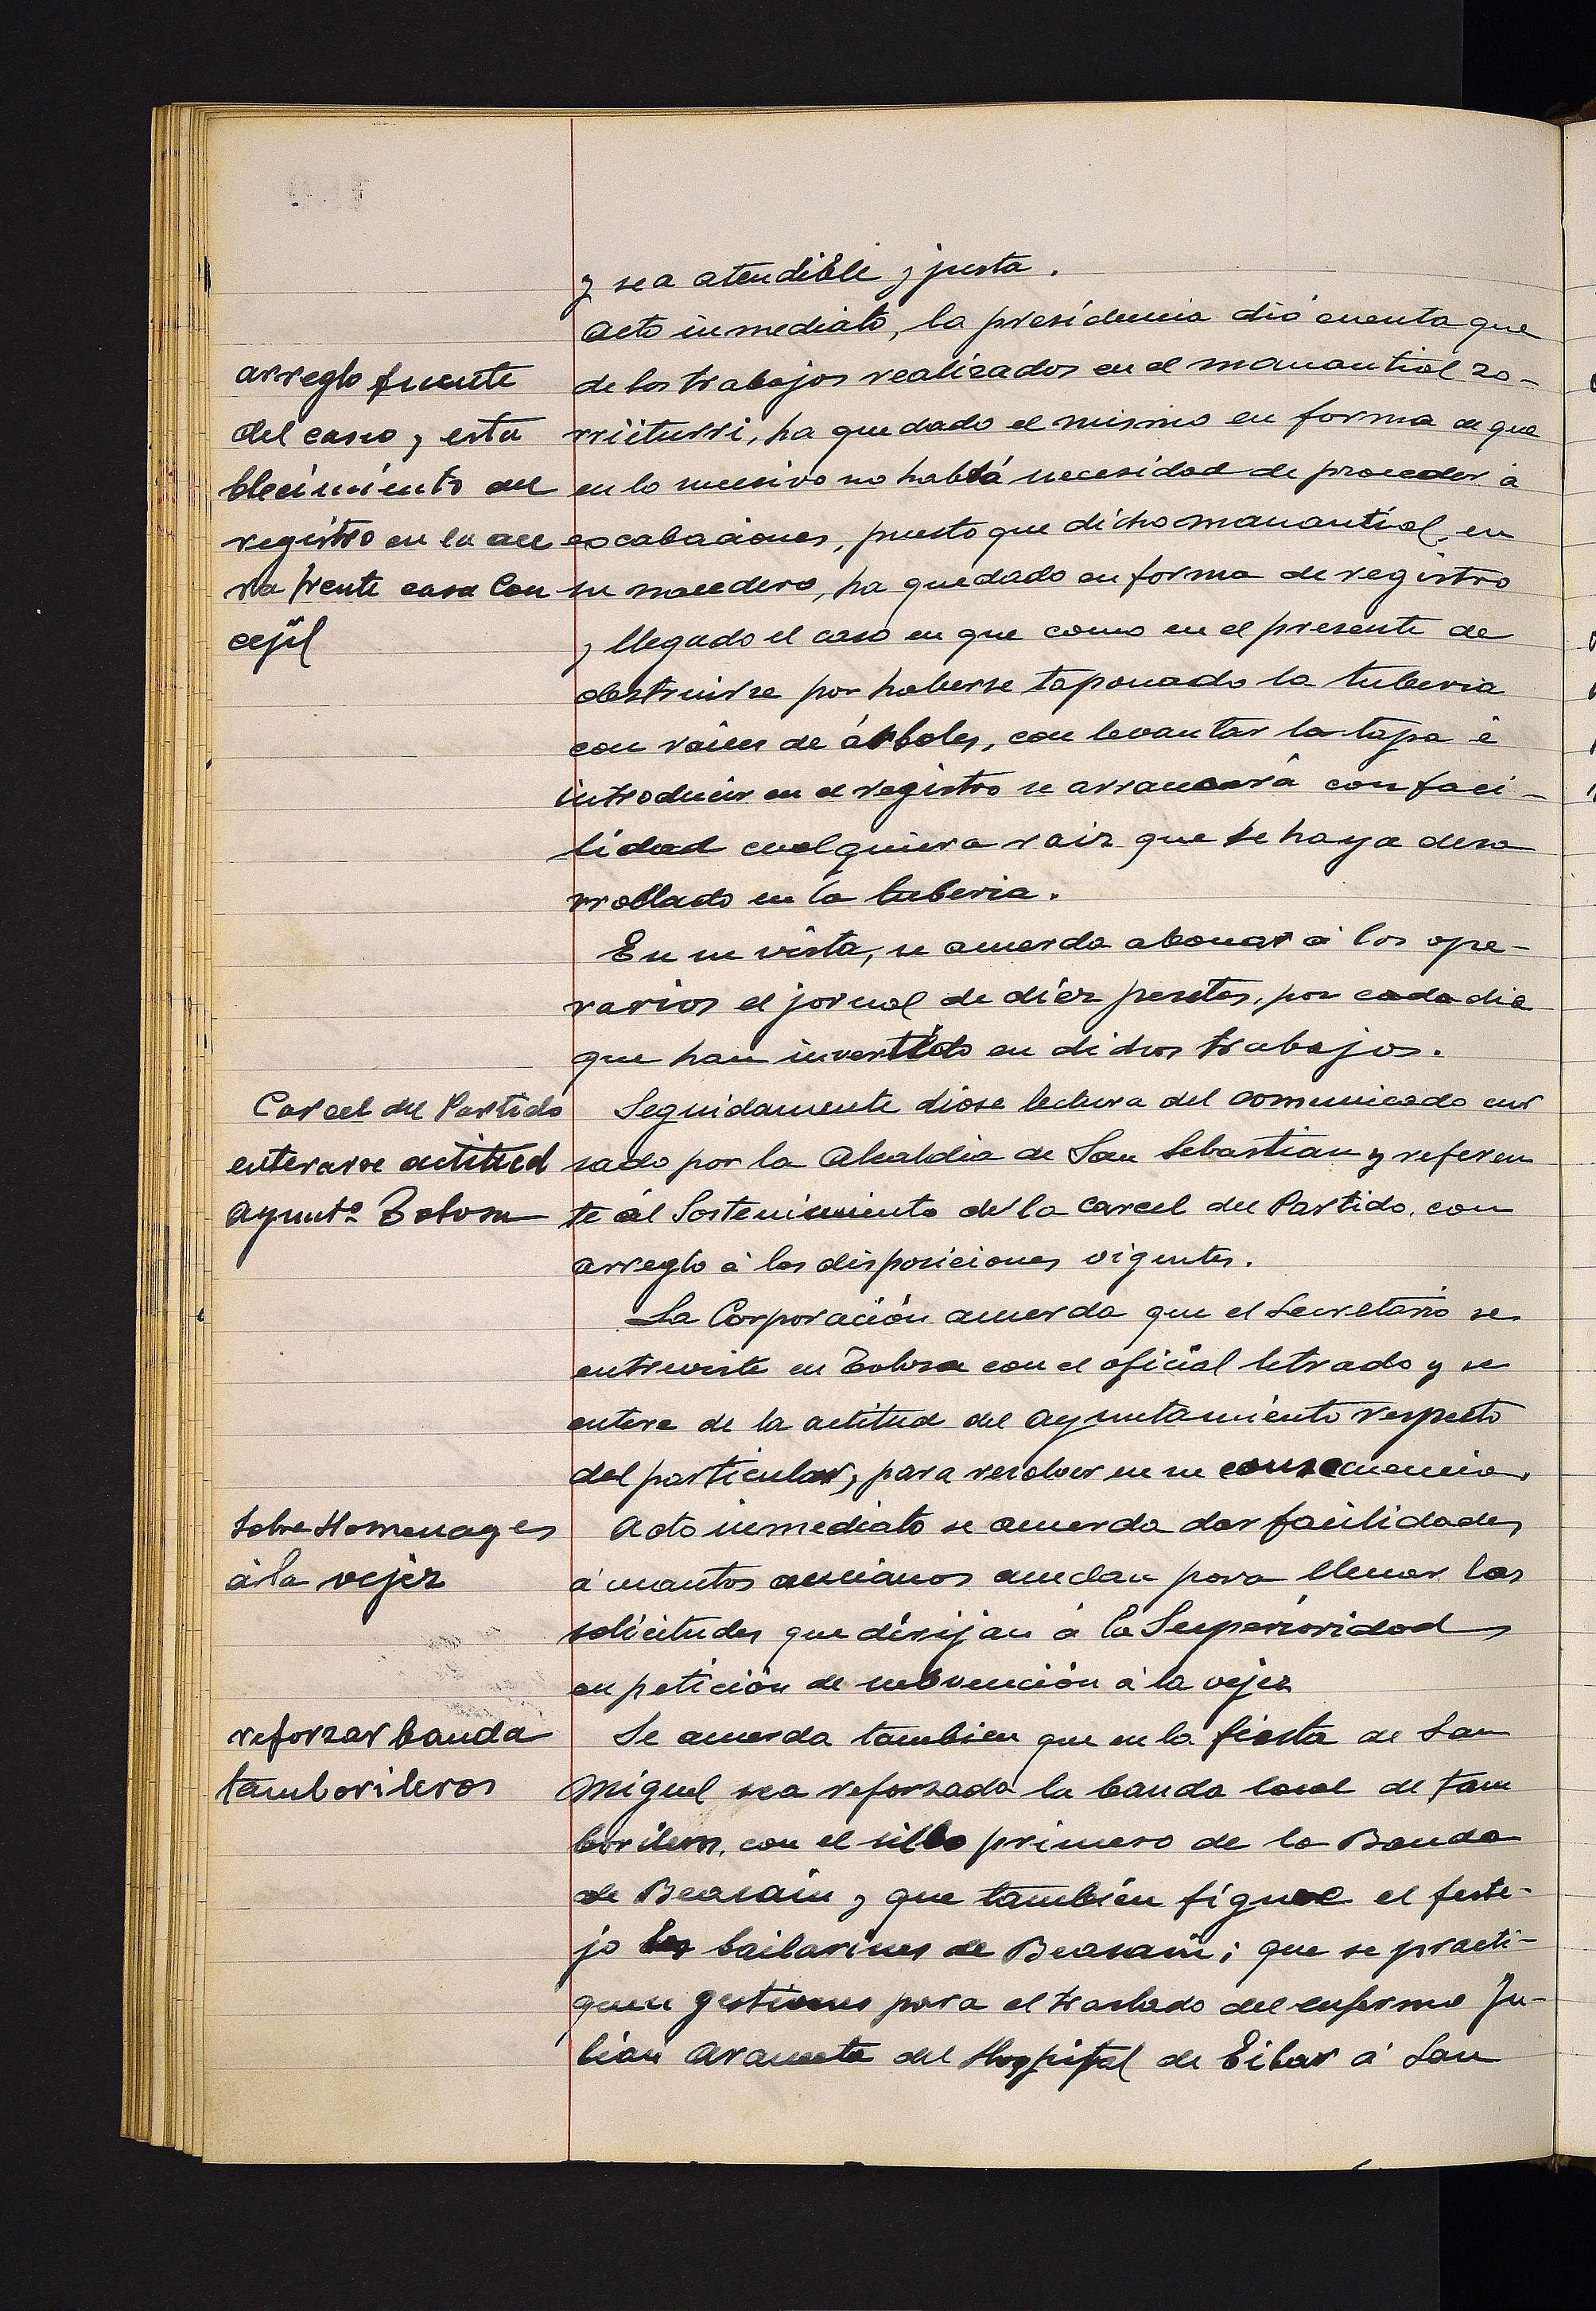 y sea atendible y justa.
Acto inmediato, la presidencia dió cuenta que
arreglo fuente
del casco y esta
blecimiento del
registro en la ace
ra frente casa Con
cejil
de los trabajos realizados en el manantial zo-
rriiturri, ha quedado el mismo en forma de que
en lo sucesivo no habrá necesidad de proceder á
escabaciones, puesto que dicho manantial, en
su nacedero, ha quedado en forma de registro
y llegado el caso en que como en el presente de
obstruirse por haberse taponado la tuberia
con raices de árboles, con levantar la tapa é
introducir en el registro se arrancará con faci-
lidad cualquiera raiz que se haya desa
rrollado en la tuberia.
En su vista, se acuerda abonar á los ope-
rarios el jornal de diez pesetas, por cada dia
que han invertido en dichos trabajos.
Carcel del Partido
enterarse actitud
Ayuntº Tolosa
Seguidamente diose lectura del comunicado cur
sado por la Alcaldia de San Sebastian y referen
te al Sostenimiento de la Carcel del Partido, con
arreglo á las disposiciones vigentes.
La Corporación acuerda que el Secretario se
entreviste en Tolosa con el oficial letrado y se
entere de la actitud del Ayuntamiento respecto
del particular, para resolver en su consecuencia.
Sobre Homenages
á la vejez
Acto inmediato se acuerda dar facilidades
á cuantos ancianos acudan para llenar las
solicitudes que dirijan á la Superioridad
en petición de subvención á la vejez
reforzar banda
tamborileros
Se acuerda tambien que en la fiesta de San
Miguel sea reforzada la banda local de tam
borileros, con el silbo primero de la Banda
de Beasain y que también figure el feste-
jo los bailarines de Beasain; que se practi-
quen gestiones para el traslado del enfermo Ju-
lian del Hospital de Eibar á San